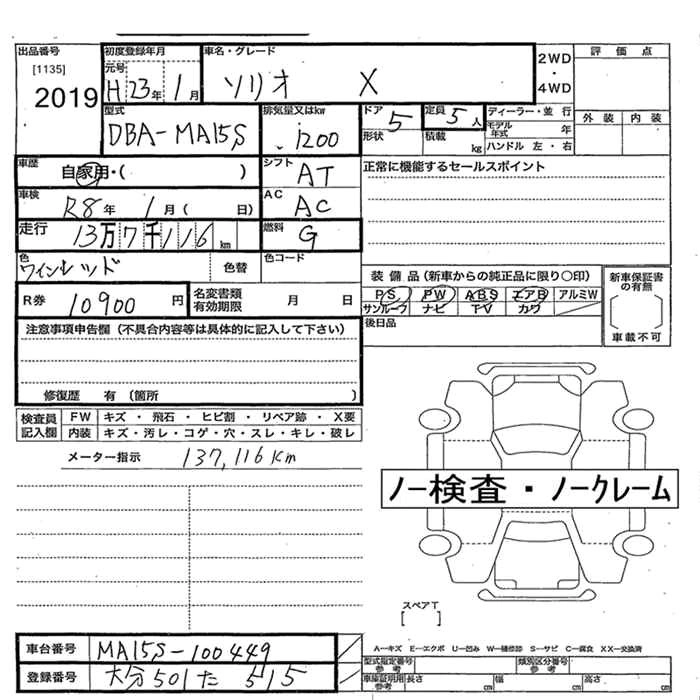 出品番号 [1135] 2019
初度登録年月 元号 H 23年 1月
車名・グレード ソリオ X
2WD ・ 4WD
評価点
外装 内装
型式 DBA-MA15S
排気量又はkw 1200
ドア 形状 5
定員 5人
積載 kg
ディーラー・並行
モデル年式 年
ハンドル 左・右
車歴 自家用・( )
シフト AT
正常に機能するセールスポイント
車検 R8年 1月( 日)
AC AC
走行 13万7千116km
燃料 G
色 ワインレッド 色替
色コード
装備品(新車からの純正品に限り○印)
PS PW ABS エアB アルミW
サンルーフ ナビ TV カワ
新車保証書の有無
車載不可
R券 10900円
名変書類有効期限 月 日
後日品
注意事項申告欄(不具合内容等は具体的に記入して下さい)
修復歴 有(箇所 )
検査員記入欄
FW キズ・飛石・ヒビ割・リペア跡・X要
内装 キズ・汚レ・コゲ・穴・スレ・キレ・破レ
メーター指示 137,116Km
ノー検査・ノークレーム
スペアT
[ ]
車台番号 MA15S-100449
登録番号 大分501た 515
A－キズ E－エクボ U－凹み W－補修跡 S－サビ C－腐食 XX－交換済
型式指定番号 参考
類別区分番号 参考
車庫証明用 参考 長さ cm 幅 cm 高さ cm